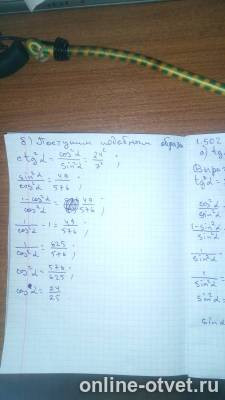 б) Поступим подобным образо
ctg²α = cos²α/sin²α = 24²/7² ;
sin²α/cos²α = 49/576 ;
1-cos²α/cos²α = 49/576 ;
1/cos²α - 1 = 49/576 ;
1/cos²α = 625/576 ;
cos²α = 576/625 ;
cosα = 24/25
1.502
а) tg
Выраз
tg²α =
cos²α
sin²α
1-sin²α
sin²α
1
sin²α
1
sin²α
sin²α
sinα
online-otvet.ru